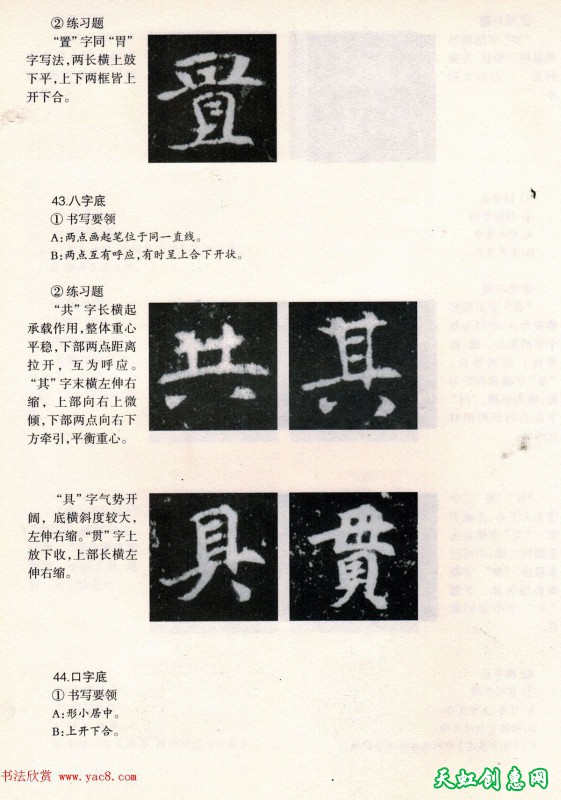 ② 练习题
“置”字同“胃”
字写法，两长横上鼓
下平，上下两框皆上
开下合。
置
43.八字底
① 书写要领
A：两点画起笔位于同一直线。
B：两点互有呼应，有时呈上合下开状。
② 练习题
“共”字长横起
承载作用，整体重心
平稳，下部两点距离
拉开，互为呼应。
“其”字末横左伸右
缩，上部向右上微
倾，下部两点向右下
方牵引，平衡重心。
共 其
“具”字气势开
阔，底横斜度较大，
左伸右缩。“贯”字上
放下收，上部长横左
伸右缩。
具 貫
44.口字底
① 书写要领
A：形小居中。
B：上开下合。
书法欣赏 www.yac8.com
天虹创意网